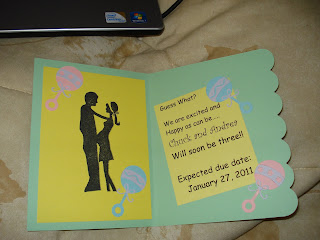 Guess What?
We are excited and
Happy as can be...
Chuck and Andrea
Will soon be three!!
Expected due date:
January 27, 2011